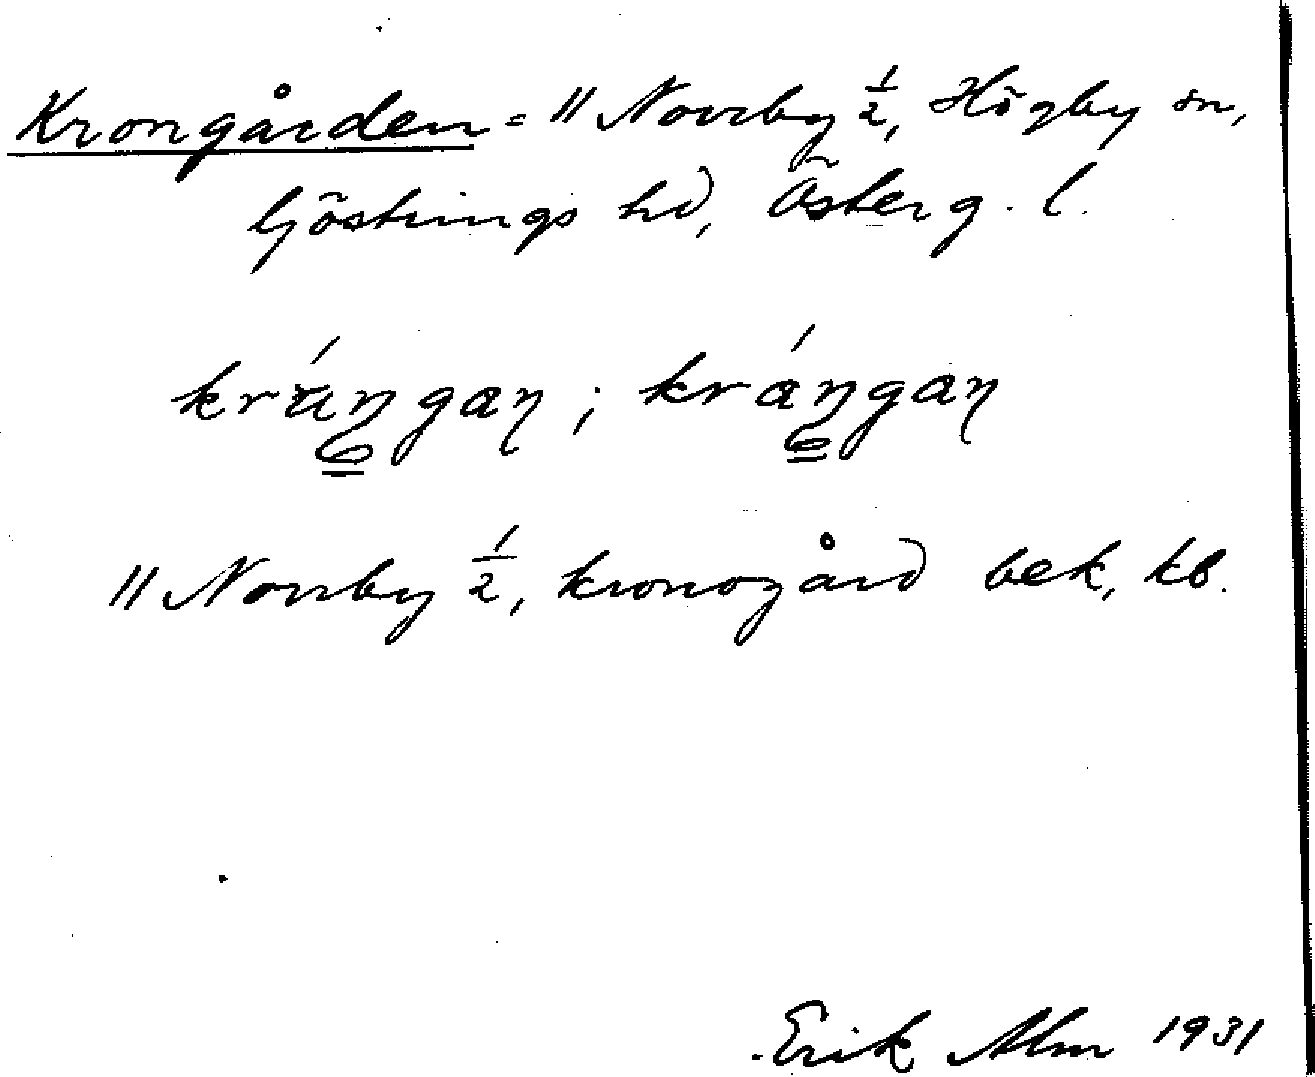 Krongården = " Norrby 1/2, Högby sn,
Göstrings hd, Österg. l.
kráŋgaɳ; kráŋgaɳ
" Norrby 1/2, kronogård bek, kb.
Erik Alm 1931